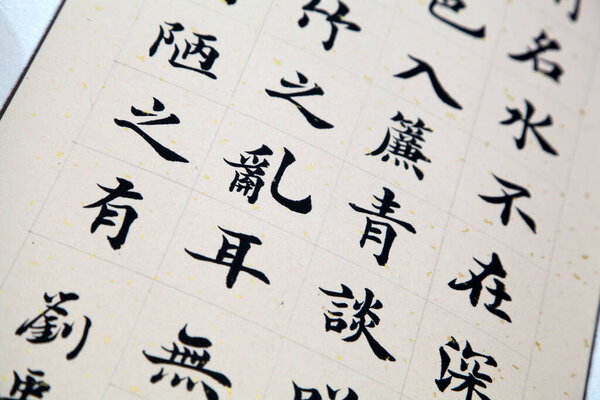 名水不在深
色入簾青談
竹之亂耳無
陋之有劉